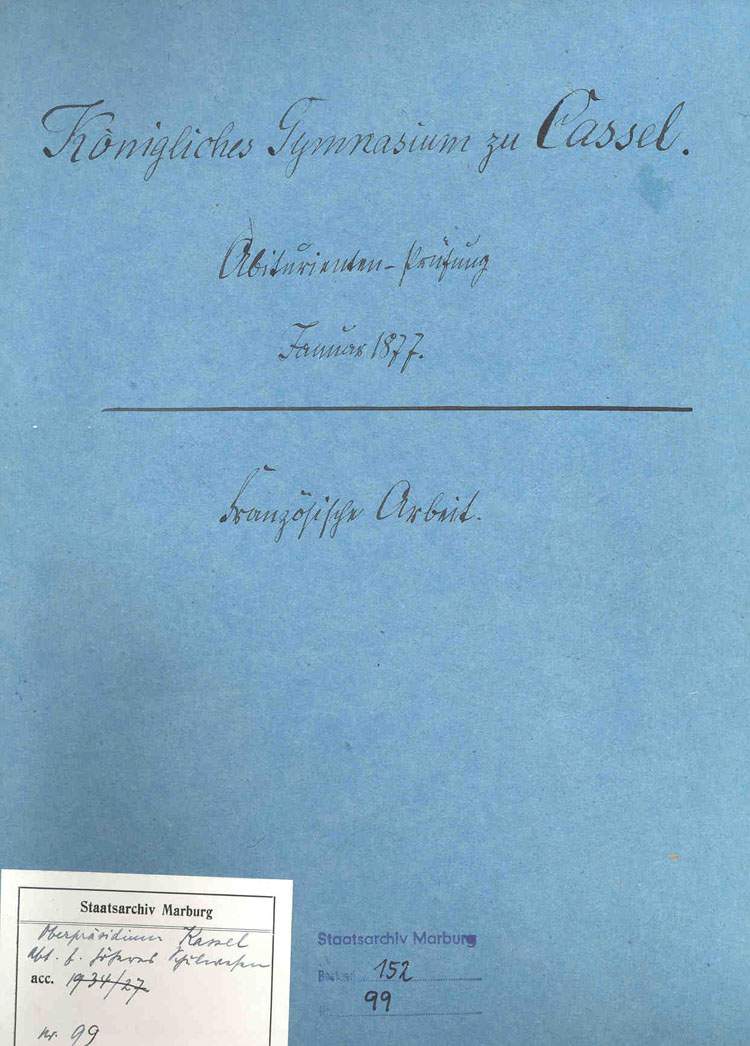 Königliches Gymnasium zu Cassel.
Abiturienten-Prüfung
Januar 1877.
Französische Arbeit.
Staatsarchiv Marburg
Oberpräsidium Kassel
Abt. f. höheres Schulwesen
acc. 1934/27
Nr. 99
Staatsarchiv Marburg
Bestand 152
Nr. 99